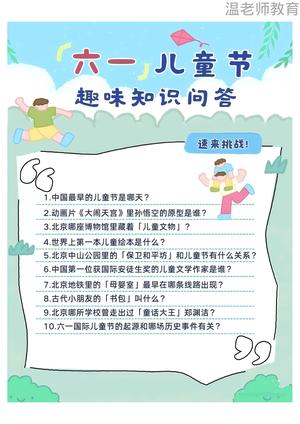 温老师教育
「六一」儿童节
趣味知识问答
速来挑战!
1.中国最早的儿童节是哪天?
2.动画片《大闹天宫》里孙悟空的原型是谁?
3.北京哪座博物馆里藏着「儿童文物」?
4.世界上第一本儿童绘本是什么?
5.北京中山公园里的「保卫和平坊」和儿童节有什么关系?
6.中国第一位获国际安徒生奖的儿童文学作家是谁?
7.北京地铁里的「母婴室」最早在哪条线路出现?
8.古代小朋友的「书包」叫什么?
9.北京哪所学校曾走出过「童话大王」郑渊洁?
10.六一国际儿童节的起源和哪场历史事件有关?